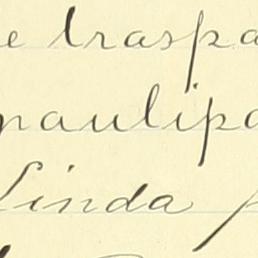 e traspa
naulipa
Linda